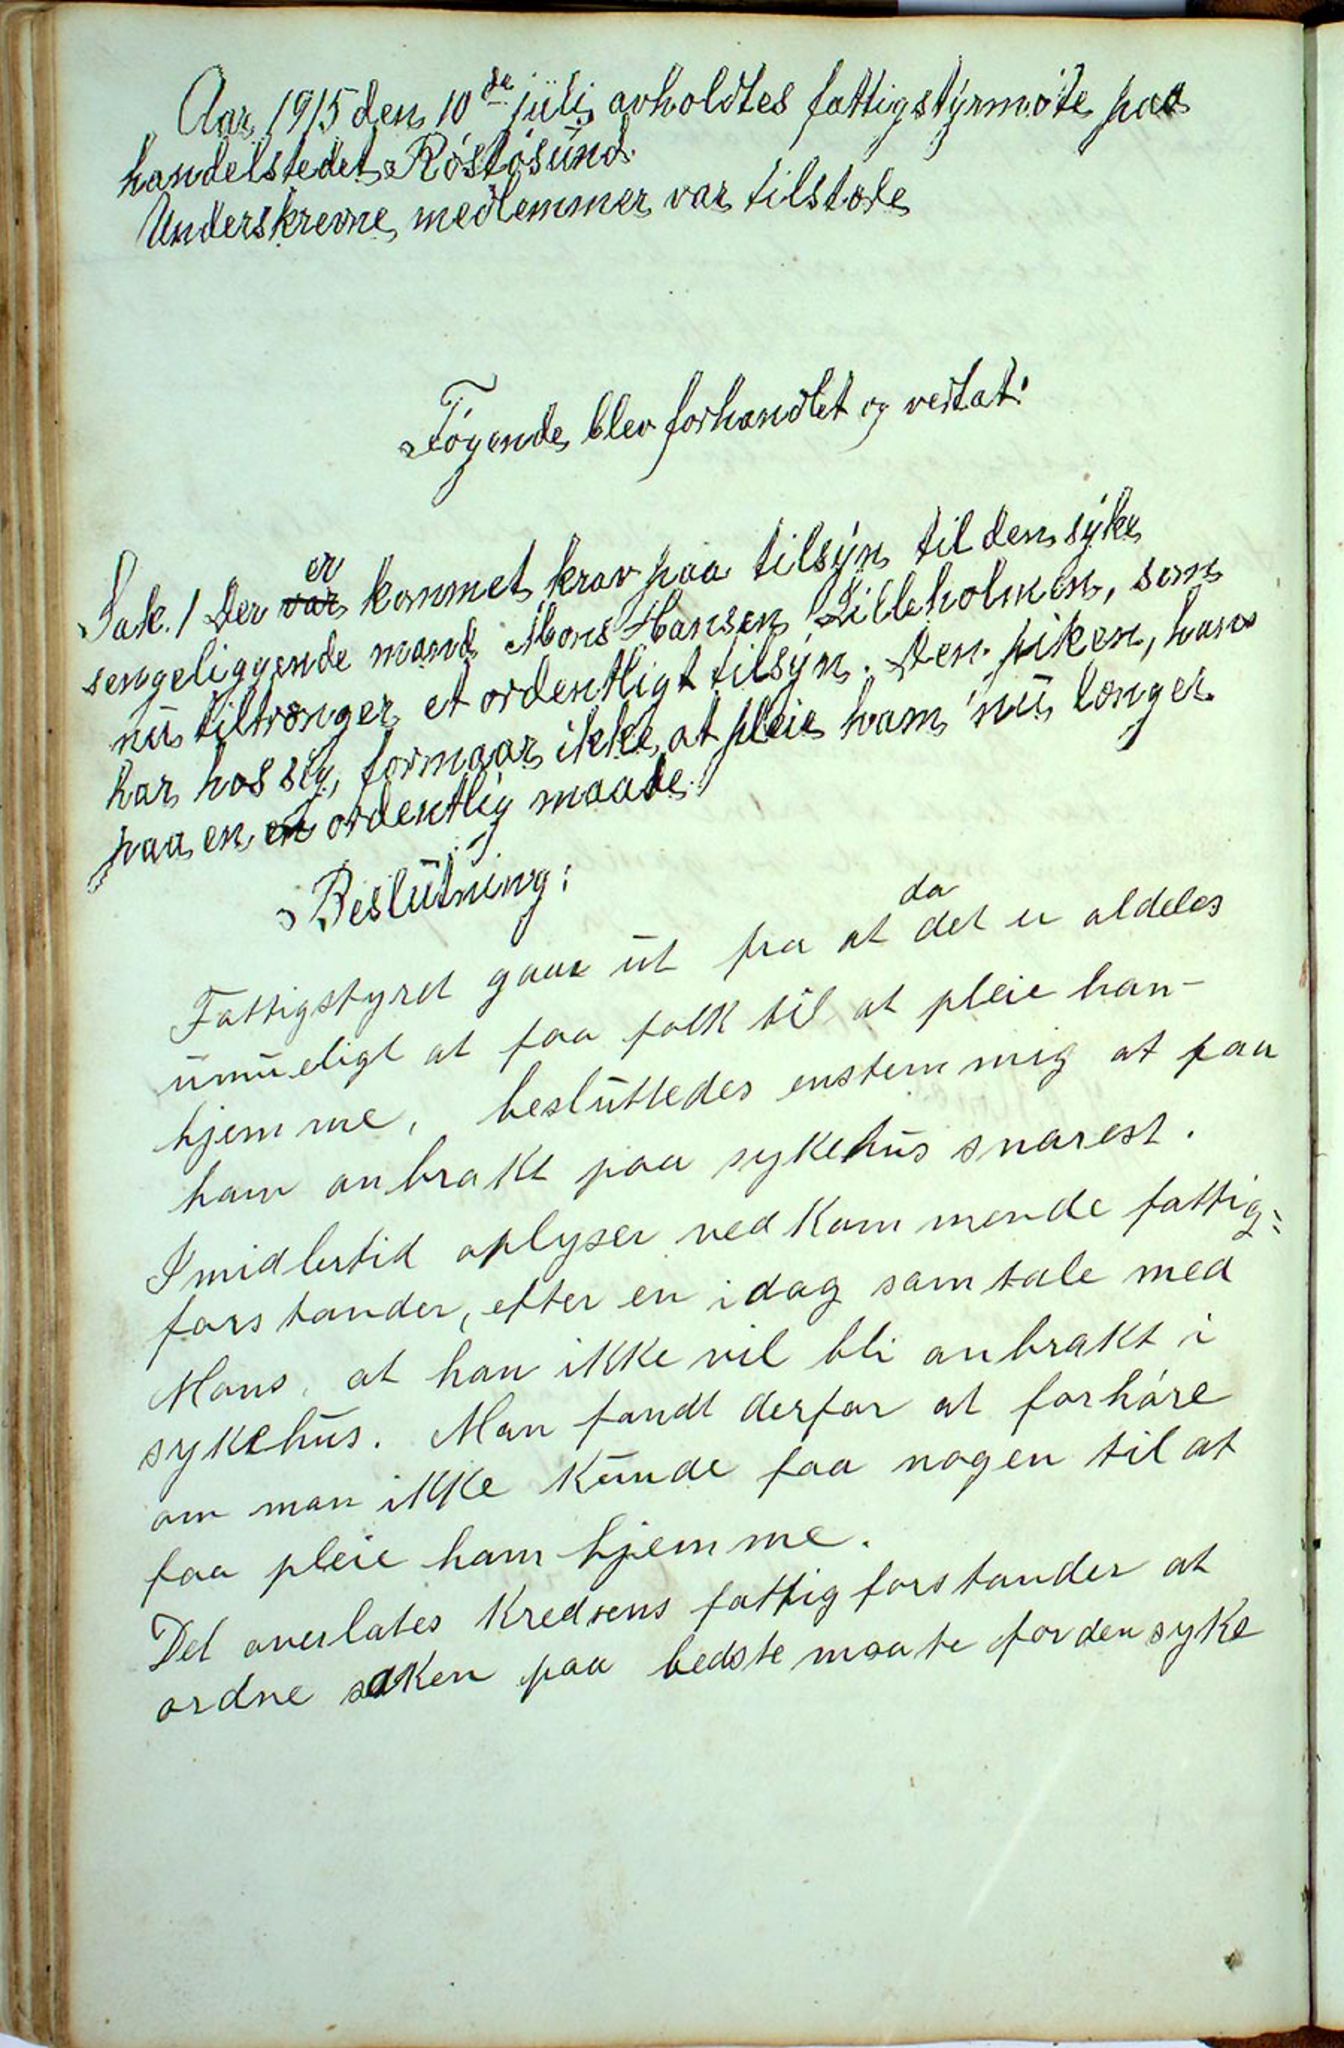 Aar 1915 den 10de juli avholdtes fattigstyrmøte paa
handelstedet Røstøsund.
Underskrevne medlemmer var tilstæde
Føgende blev forhandlet og vedtat:
Sak. 1 Der var er kommet krav paa tilsyn til den syke
sengeliggende mand Mons Hansen Lilleholmen, som
nu tiltrænger et ordentligt tilsyn. Den piken, han
har hos sig, formaar ikke at pleie ham nu længer
paa en et ordentlig maade.
Beslutning:
Fattigstyret gaar ut fra at da det er aldeles
umueligt at faa folk til at pleie han-
hjemme, besluttedes enstemmig at faa
ham anbrakt paa sykehus snarest.
Imidlertid oplyser vedkommende fattig=
forstander, efter en idag samtale med
Mons, at han ikke vil bli anbrakt i
sykehus. Man fandt derfor at forhøre
om man ikke kunde faa nogen til at
faa pleie ham hjemme.
Det overlates kredsens fattigforstander at
ordne saken paa bedste maate for den syke